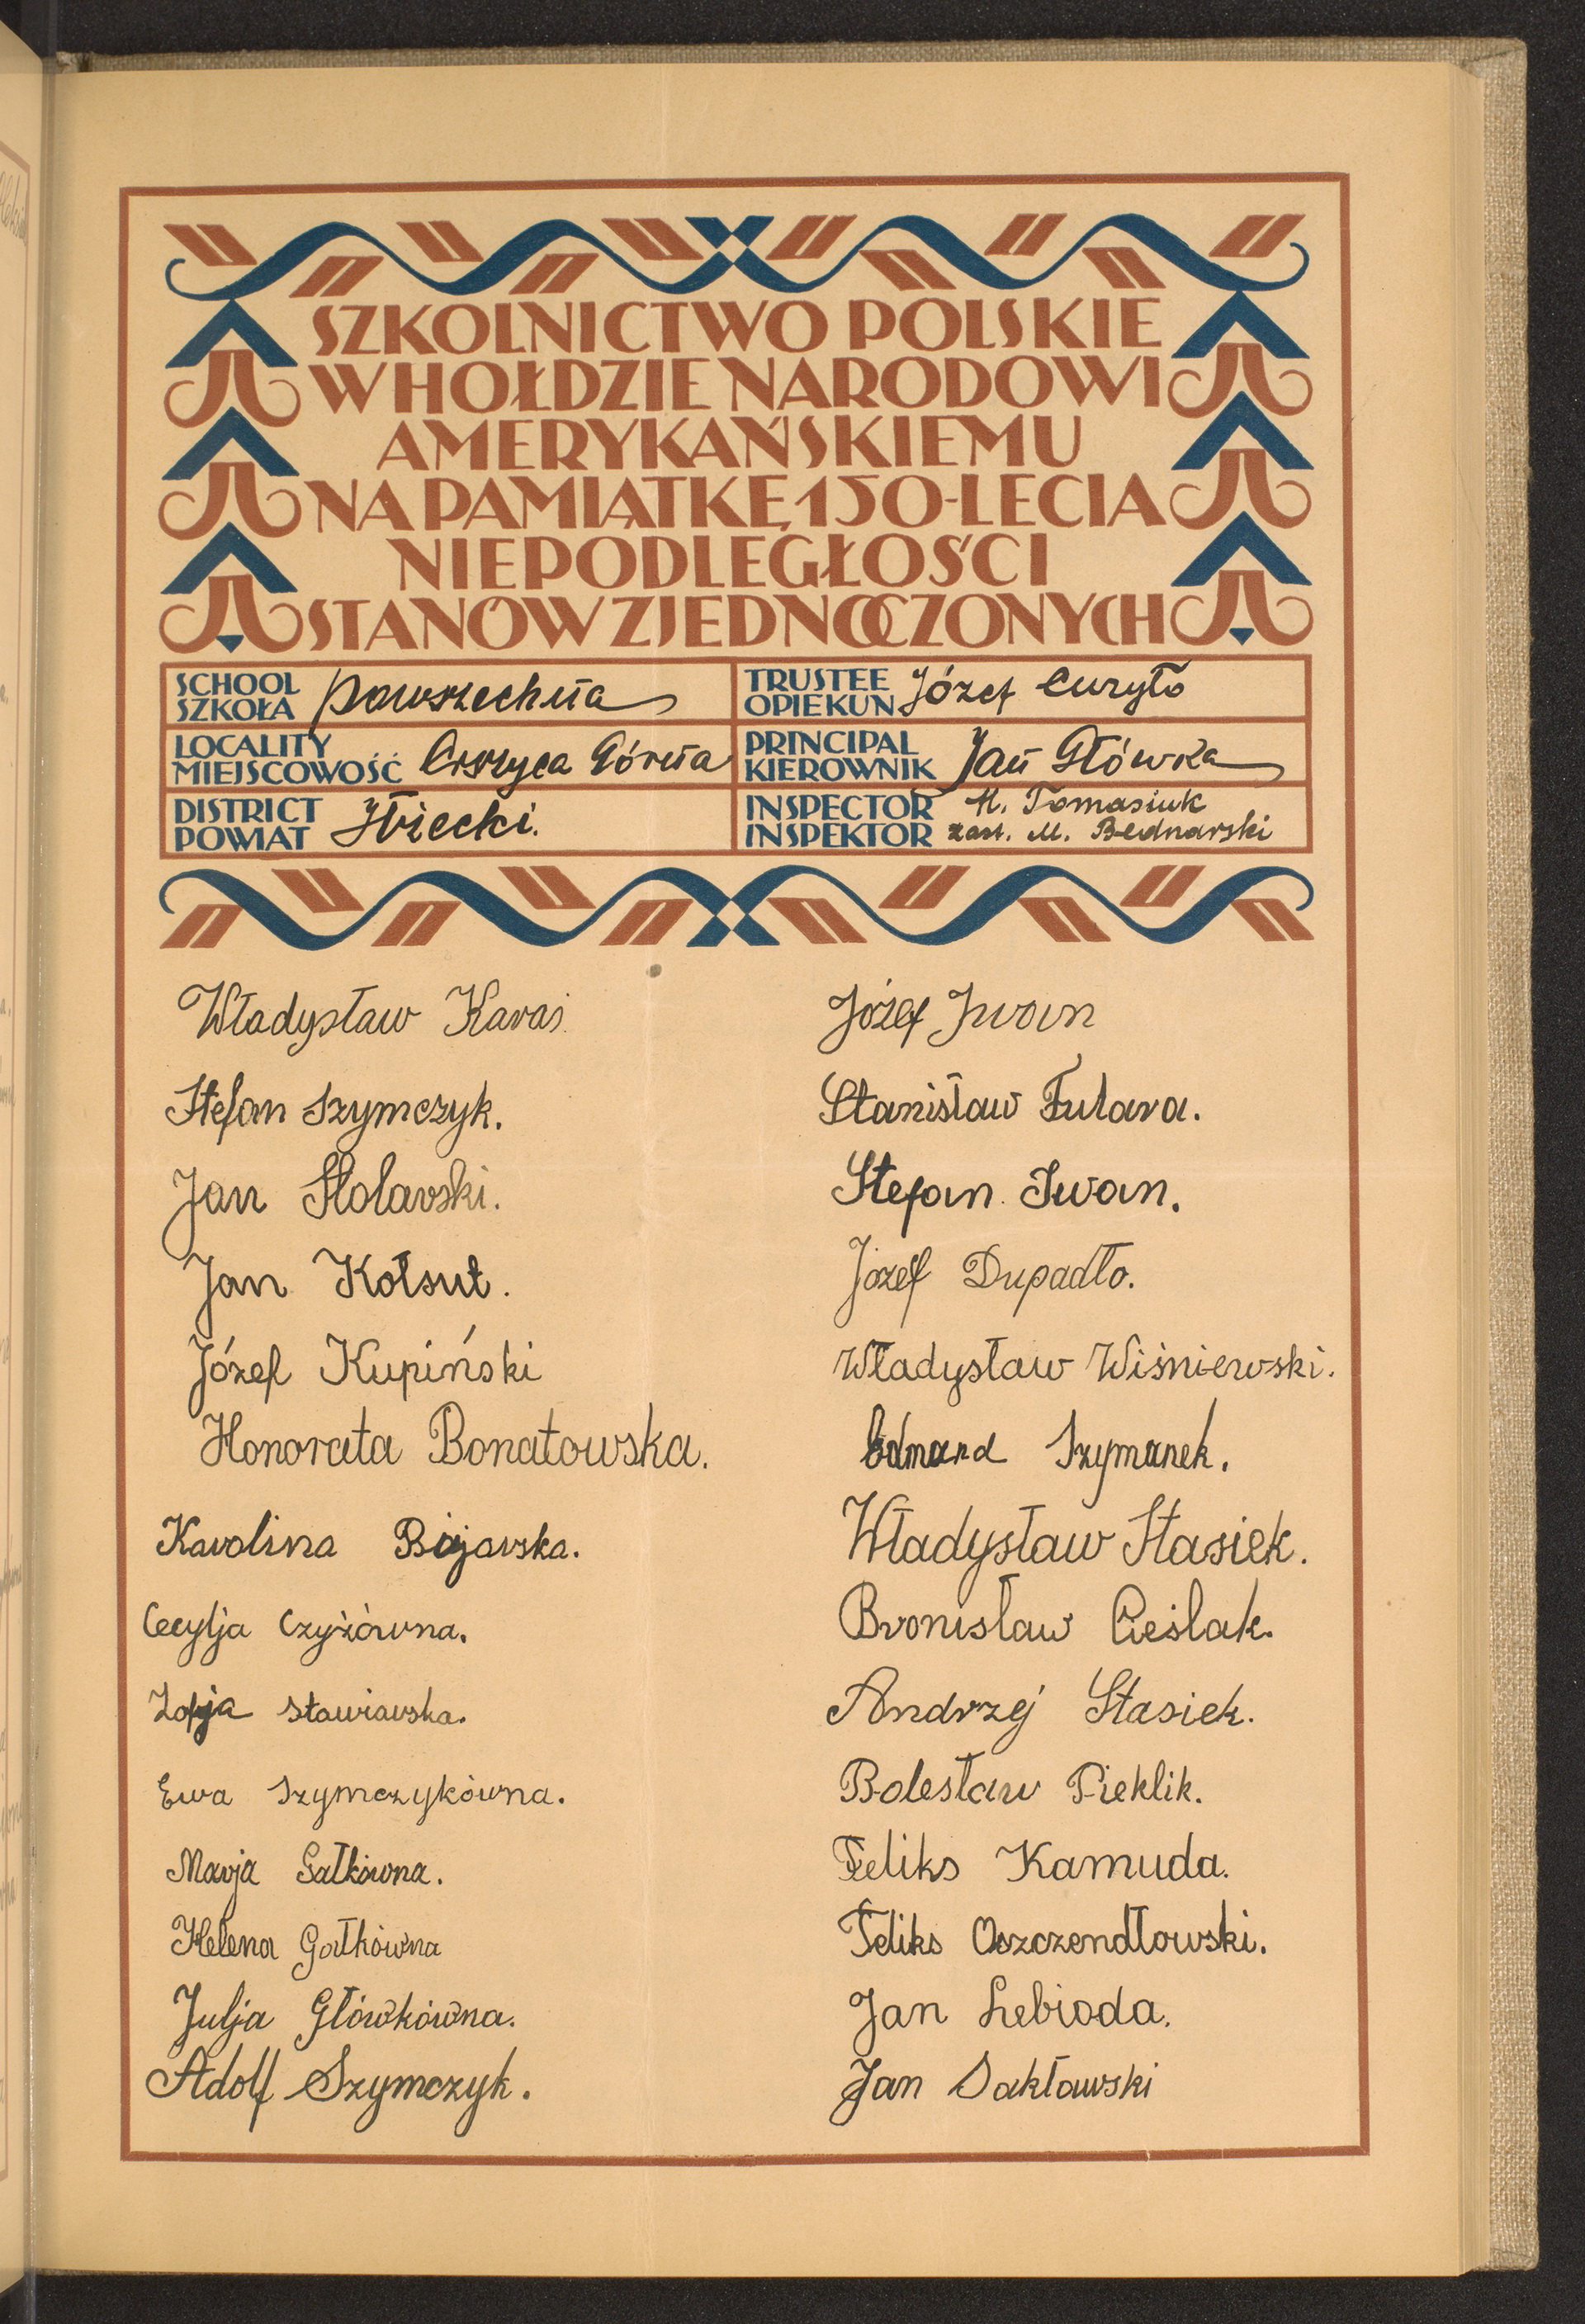 SZKOLNICTWO POLSKIE
W HOŁDZIE NARODOWI
AMERYKAŃSKIEMU
NA PAMIĄTKĘ 150-LECIA
NIEPODLEGŁOŚCI
STANÓW ZJEDNOCZONYCH
SCHOOL
SZKOŁA Powszechna
TRUSTEE
OPIEKUN Józef Curyło
LOCALITY
MIEJSCOWOŚĆ Górna
PRINCIPAL
KIEROWNIK Jan Główka
DISTRICT
POWIAT Iłżecki.
INSPECTOR H. Tomasiuk
INSPEKTOR zast. M. Bednarski
Władysław Karaś
Stefan Szymczyk.
Jan Stolarski.
Jan Kołsut.
Józef Kupiński
Honorata Bonatowska.
Karolina Bojarska.
Cecylja Czyżówna.
Zofja Stawiarska.
Ewa Szymczykówna.
Marja Gałkówna.
Helena Gałkówna
Julja Główkówna.
Adolf Szymczyk.
Józef Iwan
Stanisław Futara.
Stefan Iwan.
Józef Dupadło.
Władysław Wiśniewski.
Edmard Szymanek.
Władysław Stasiek.
Bronisław Cieślak.
Andrzej Stasiek.
Bolesław Pieklik.
Feliks Kamuda.
Feliks Oszczendłowski.
Jan Lebioda.
Jan Sakławski